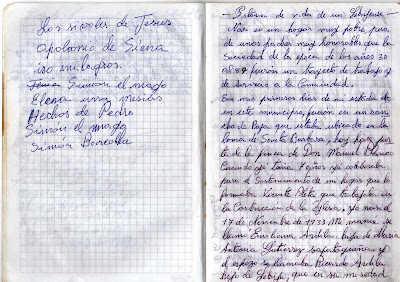 Los rivales de Jesus
Apolonio de Siena
izo milagros.
Simon el mago
Elena una mesias
Hechos de Pedro
Simón el mago
Simón Barcoba
Historia de vida de un
Nací en un hogar muy pobre pero
de unos padres muy honorables que la
Sociedad de la época de los años 30
al 87 fueron un trayecto de trabajo y
de servicio a la Comunidad.
En mis primeros días de mi estadia
en este municipio, fueron en un ran
cho de Paja que estaba ubicado en la
loma de Santa Barbara, hoy hace par
te de la finca de Don Manuel
Cuando ya Tenía 7 años ya colaboraba
para el Sostenimiento de mi hogar que lo
formaba Vicente Plata que trabajaba en
la Construccion de la Iglesia, yo nací el
17 de Noviembre de 1933 Mi mamá se
llamó Emiliana Ardila hija de María
Antonia Gutierrez zapatoqueña y
el esposo se llamaba Ricardo Ardila
hijo de que en su mocedad